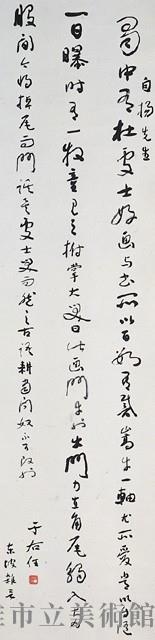 自楊先生
蜀中有杜處士好画与書所以百數有戴嵩牛一軸尤所愛常以自隨
一日曝時有一牧童見之拊掌大笑曰此画鬥牛也鬥力在角尾搐入兩
股間今乃掉尾而鬥謬矣處士笑而然之古語耕當問奴不可改也
于右任
東坡雜言
雄市立美術館